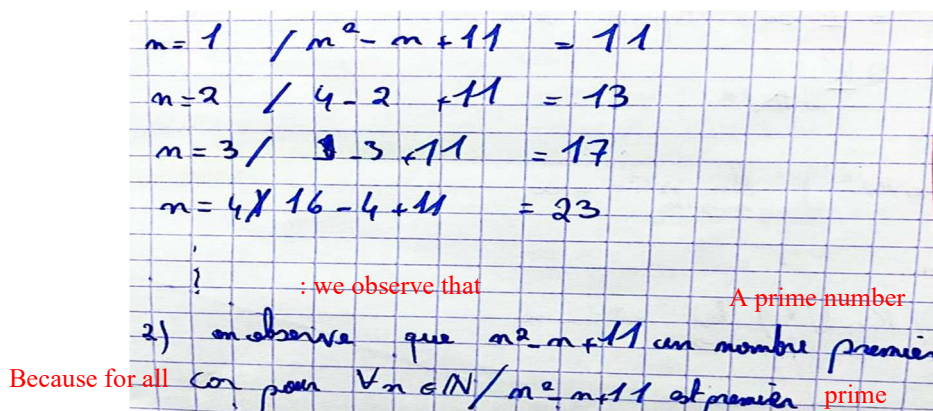 n=1 / n²-n+11 = 11
n=2 / 4-2 +11 = 13
n=3 / 9-3+11 = 17
n=4 / 16-4+11 = 23
: we observe that
A prime number
2) on observe que n²-n+11 un nombre premier
Because for all car pour ∀n∈ℕ/ n²-n+11 est premier prime